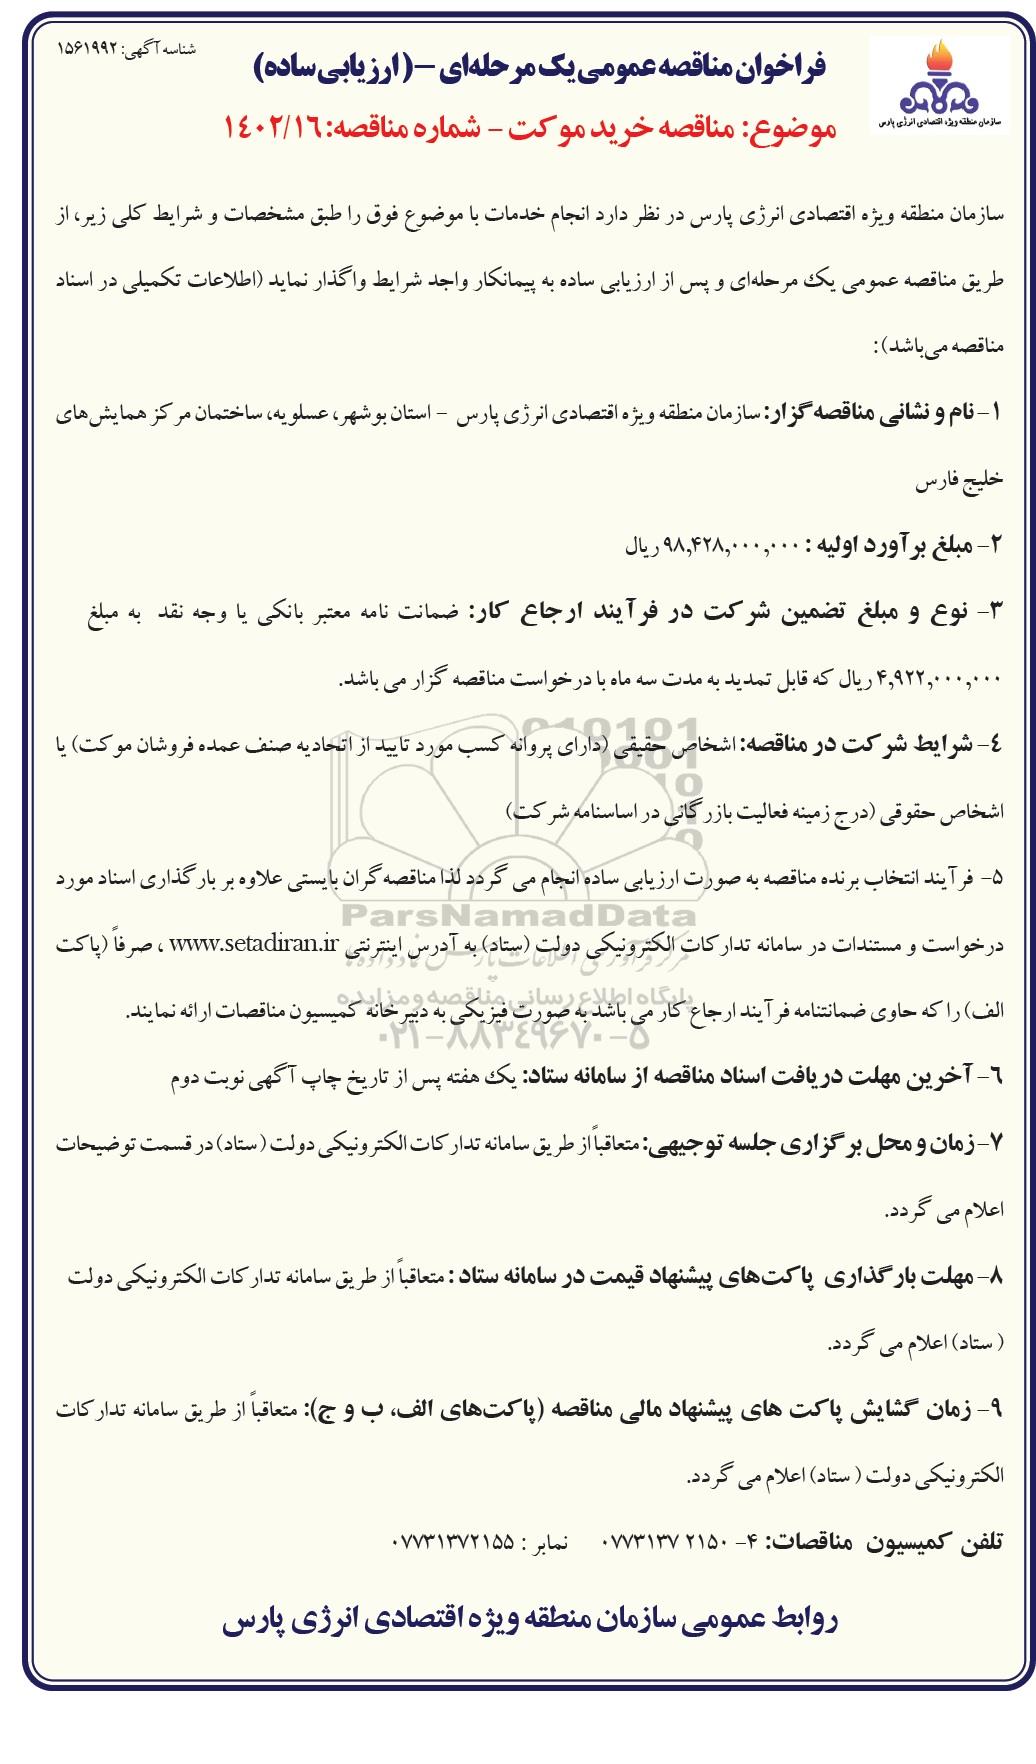 شناسه آگهی: ۱۵۶۱۹۹۲
فراخوان مناقصه عمومی یک مرحله‌ای –( ارزیابی ساده)
سازمان منطقه ویژه اقتصادی انرژی پارس
موضوع: مناقصه خرید موکت - شماره مناقصه: ۱۴۰۲/۱۶
سازمان منطقه ویژه اقتصادی انرژی پارس در نظر دارد انجام خدمات با موضوع فوق را طبق مشخصات و شرایط کلی زیر، از
طریق مناقصه عمومی یک مرحله‌ای و پس از ارزیابی ساده به پیمانکار واجد شرایط واگذار نماید (اطلاعات تکمیلی در اسناد
مناقصه می‌باشد):
۱- نام و نشانی مناقصه‌گزار: سازمان منطقه ویژه اقتصادی انرژی پارس - استان بوشهر، عسلویه، ساختمان مرکز همایش‌های
خلیج فارس
۲- مبلغ برآورد اولیه : ۹۸,۴۲۸,۰۰۰,۰۰۰ ریال
۳- نوع و مبلغ تضمین شرکت در فرآیند ارجاع کار: ضمانت نامه معتبر بانکی یا وجه نقد به مبلغ
۴,۹۲۲,۰۰۰,۰۰۰ ریال که قابل تمدید به مدت سه ماه با درخواست مناقصه گزار می باشد.
۴- شرایط شرکت در مناقصه: اشخاص حقیقی (دارای پروانه کسب مورد تایید از اتحادیه صنف عمده فروشان موکت) یا
اشخاص حقوقی (درج زمینه فعالیت بازرگانی در اساسنامه شرکت)
۵- فرآیند انتخاب برنده مناقصه به صورت ارزیابی ساده انجام می گردد لذا مناقصه‌گران بایستی علاوه بر بارگذاری اسناد مورد
درخواست و مستندات در سامانه تدارکات الکترونیکی دولت (ستاد) به آدرس اینترنتی www.setadiran.ir ، صرفاً (پاکت
الف) را که حاوی ضمانتنامه فرآیند ارجاع کار می باشد به صورت فیزیکی به دبیرخانه کمیسیون مناقصات ارائه نمایند.
۶- آخرین مهلت دریافت اسناد مناقصه از سامانه ستاد: یک هفته پس از تاریخ چاپ آگهی نوبت دوم
۷- زمان و محل برگزاری جلسه توجیهی: متعاقباً از طریق سامانه تدارکات الکترونیکی دولت ( ستاد) در قسمت توضیحات
اعلام می گردد.
۸- مهلت بارگذاری پاکت‌های پیشنهاد قیمت در سامانه ستاد : متعاقباً از طریق سامانه تدارکات الکترونیکی دولت
( ستاد) اعلام می گردد.
۹- زمان گشایش پاکت های پیشنهاد مالی مناقصه (پاکت‌های الف، ب و ج): متعاقباً از طریق سامانه تدارکات
الکترونیکی دولت ( ستاد) اعلام می گردد.
تلفن کمیسیون مناقصات: ۴- ۲۱۵۰ ۰۷۷۳۱۳۷ نمابر : ۰۷۷۳۱۳۷۲۱۵۵
روابط عمومی سازمان منطقه ویژه اقتصادی انرژی پارس
ParsNamadData
مرکز فرآوری اطلاعات پارس نماد داده ها
پایگاه اطلاع رسانی مناقصه و مزایده
۰۲۱-۸۸۳۴۹۶۷۰-۵